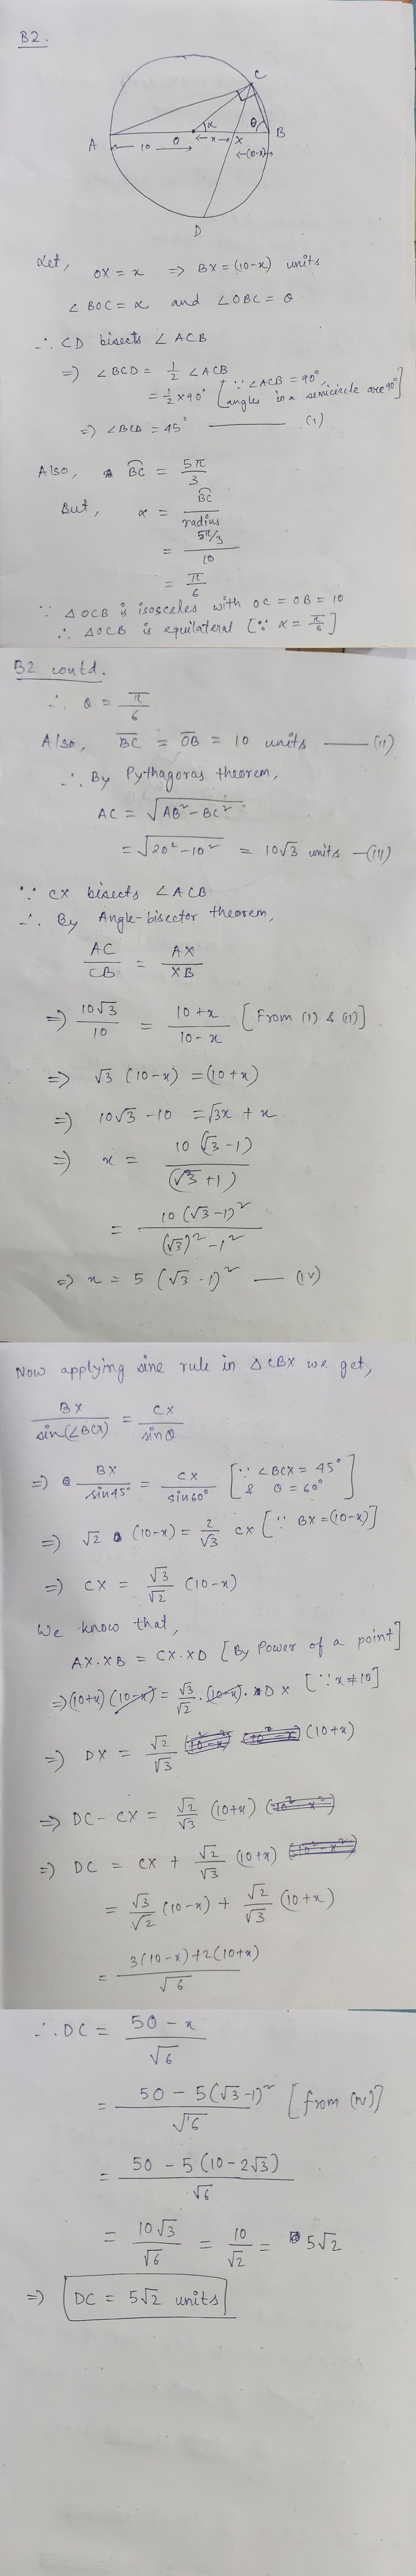 B2.
C
A
10
O
α
x
X
θ
B
(10-x)
D
Let,
OX = x ⇒ BX = (10-x) units
∠BOC = α and ∠OBC = θ
∴ CD bisects ∠ACB
⇒ ∠BCD = 1/2 ∠ACB
= 1/2 × 90° [∵ ∠ACB = 90°, angles in a semicircle are 90°]
⇒ ∠BCD = 45° ——— (i)
Also, BC = 5π/3
But, α = BC/radius
= (5π/3)/10
= π/6
∵ ΔOCB is isosceles with OC = OB = 10
∴ ΔOCB is equilateral [∵ α = π/6]
B2 contd.
∴ θ = π/6
Also, BC = OB = 10 units —— (ii)
∴ By Pythagoras theorem,
AC = √(AB² - BC²)
= √(20² - 10²) = 10√3 units — (iii)
∵ CX bisects ∠ACB
∴ By Angle-bisector theorem,
AC/CB = AX/XB
⇒ 10√3/10 = (10+x)/(10-x) [From (i) & (ii)]
⇒ √3 (10-x) = (10+x)
⇒ 10√3 - 10 = √3x + x
⇒ x = 10(√3-1)/(√3+1)
= 10(√3-1)²/((√3)² - 1²)
⇒ x = 5 (√3-1)² — (iv)
Now applying sine rule in ΔCBX we get,
BX/sin(∠BCX) = CX/sinθ
⇒ BX/sin45° = CX/sin60° [∵ ∠BCX = 45° & θ = 60°]
⇒ √2 (10-x) = 2/√3 CX [∵ BX = (10-x)]
⇒ CX = √3/√2 (10-x)
We know that,
AX.XB = CX.XD [By Power of a point]
⇒ (10+x)(10-x) = √3/√2 . (10-x) . DX [∵ x≠10]
⇒ DX = √2/√3 (10+x)
⇒ DC - CX = √2/√3 (10+x)
⇒ DC = CX + √2/√3 (10+x)
= √3/√2 (10-x) + √2/√3 (10+x)
= (3(10-x)+2(10+x))/√6
∴ DC = (50 - x)/√6
= (50 - 5(√3-1)²)/√6 [from (iv)]
= (50 - 5(10-2√3))/√6
= 10√3/√6 = 10/√2 = 5√2
⇒ DC = 5√2 units